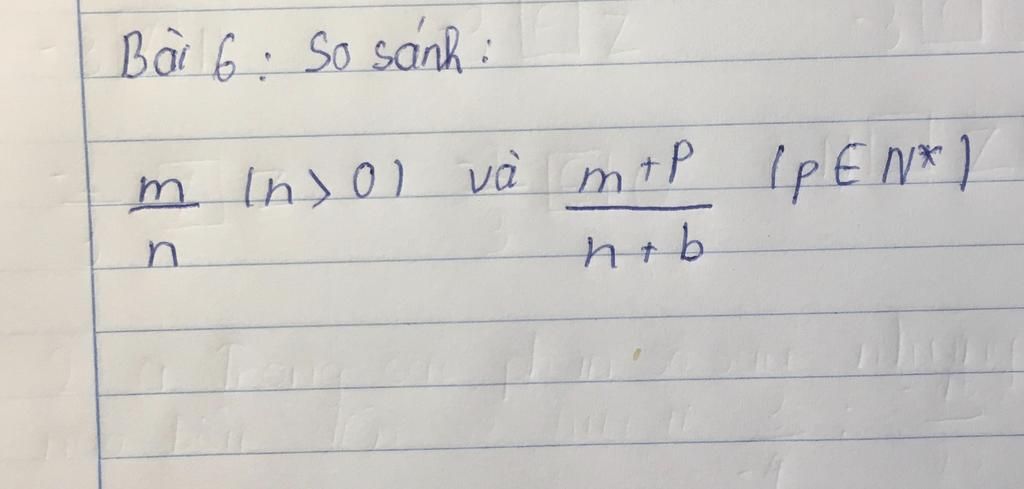 Bài 6: So sánh:
m/n (n > 0) và m+p/n+b (p ∈ N*)